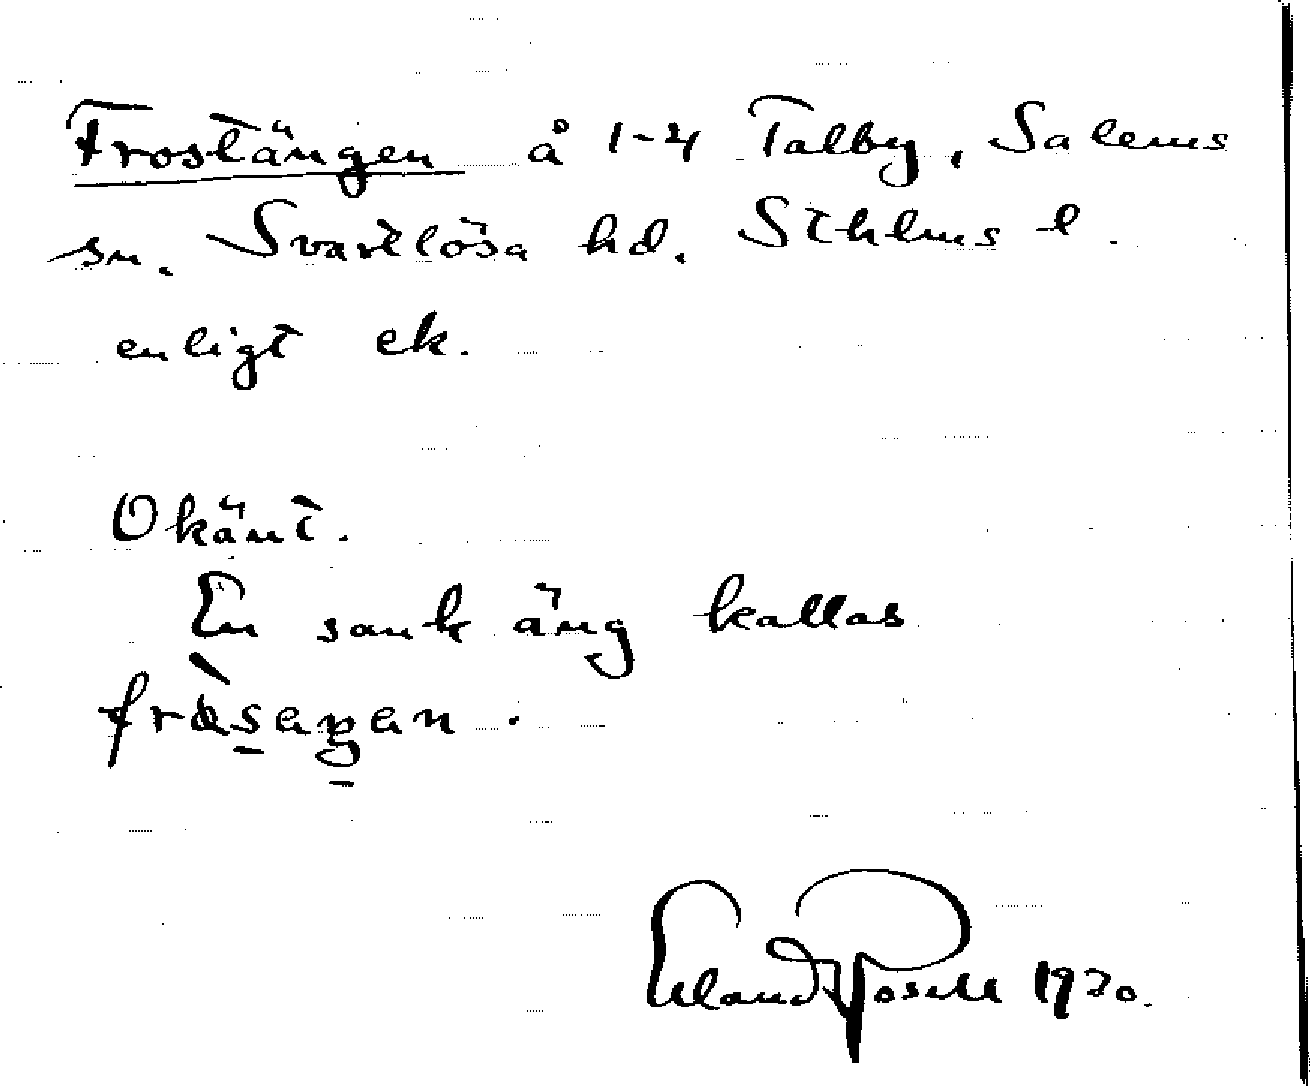 Frostängen å 1-4 Talby, Salems
sn. Svartlösa hd. Sthlms l.
enligt ek.
Okänt.
En sank äng kallas
fràsaǥan.
Erland Rosell 1970.